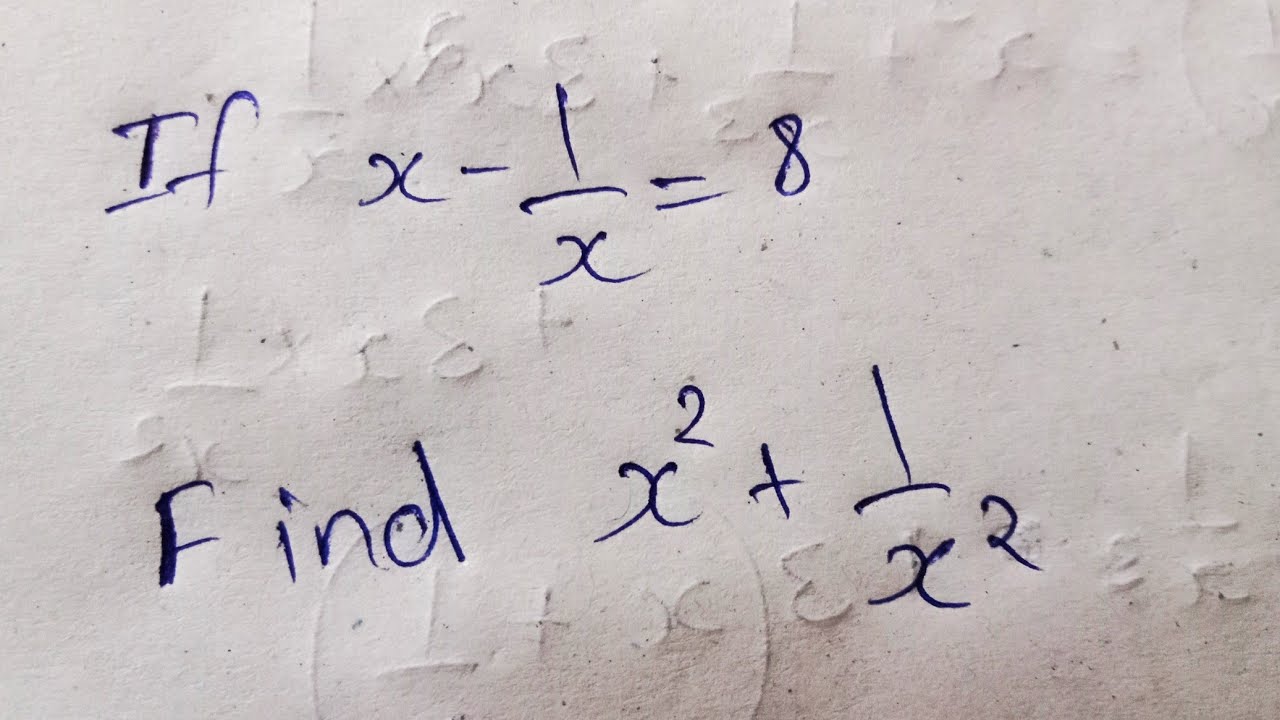 If x - 1/x = 8
Find x² + 1/x²